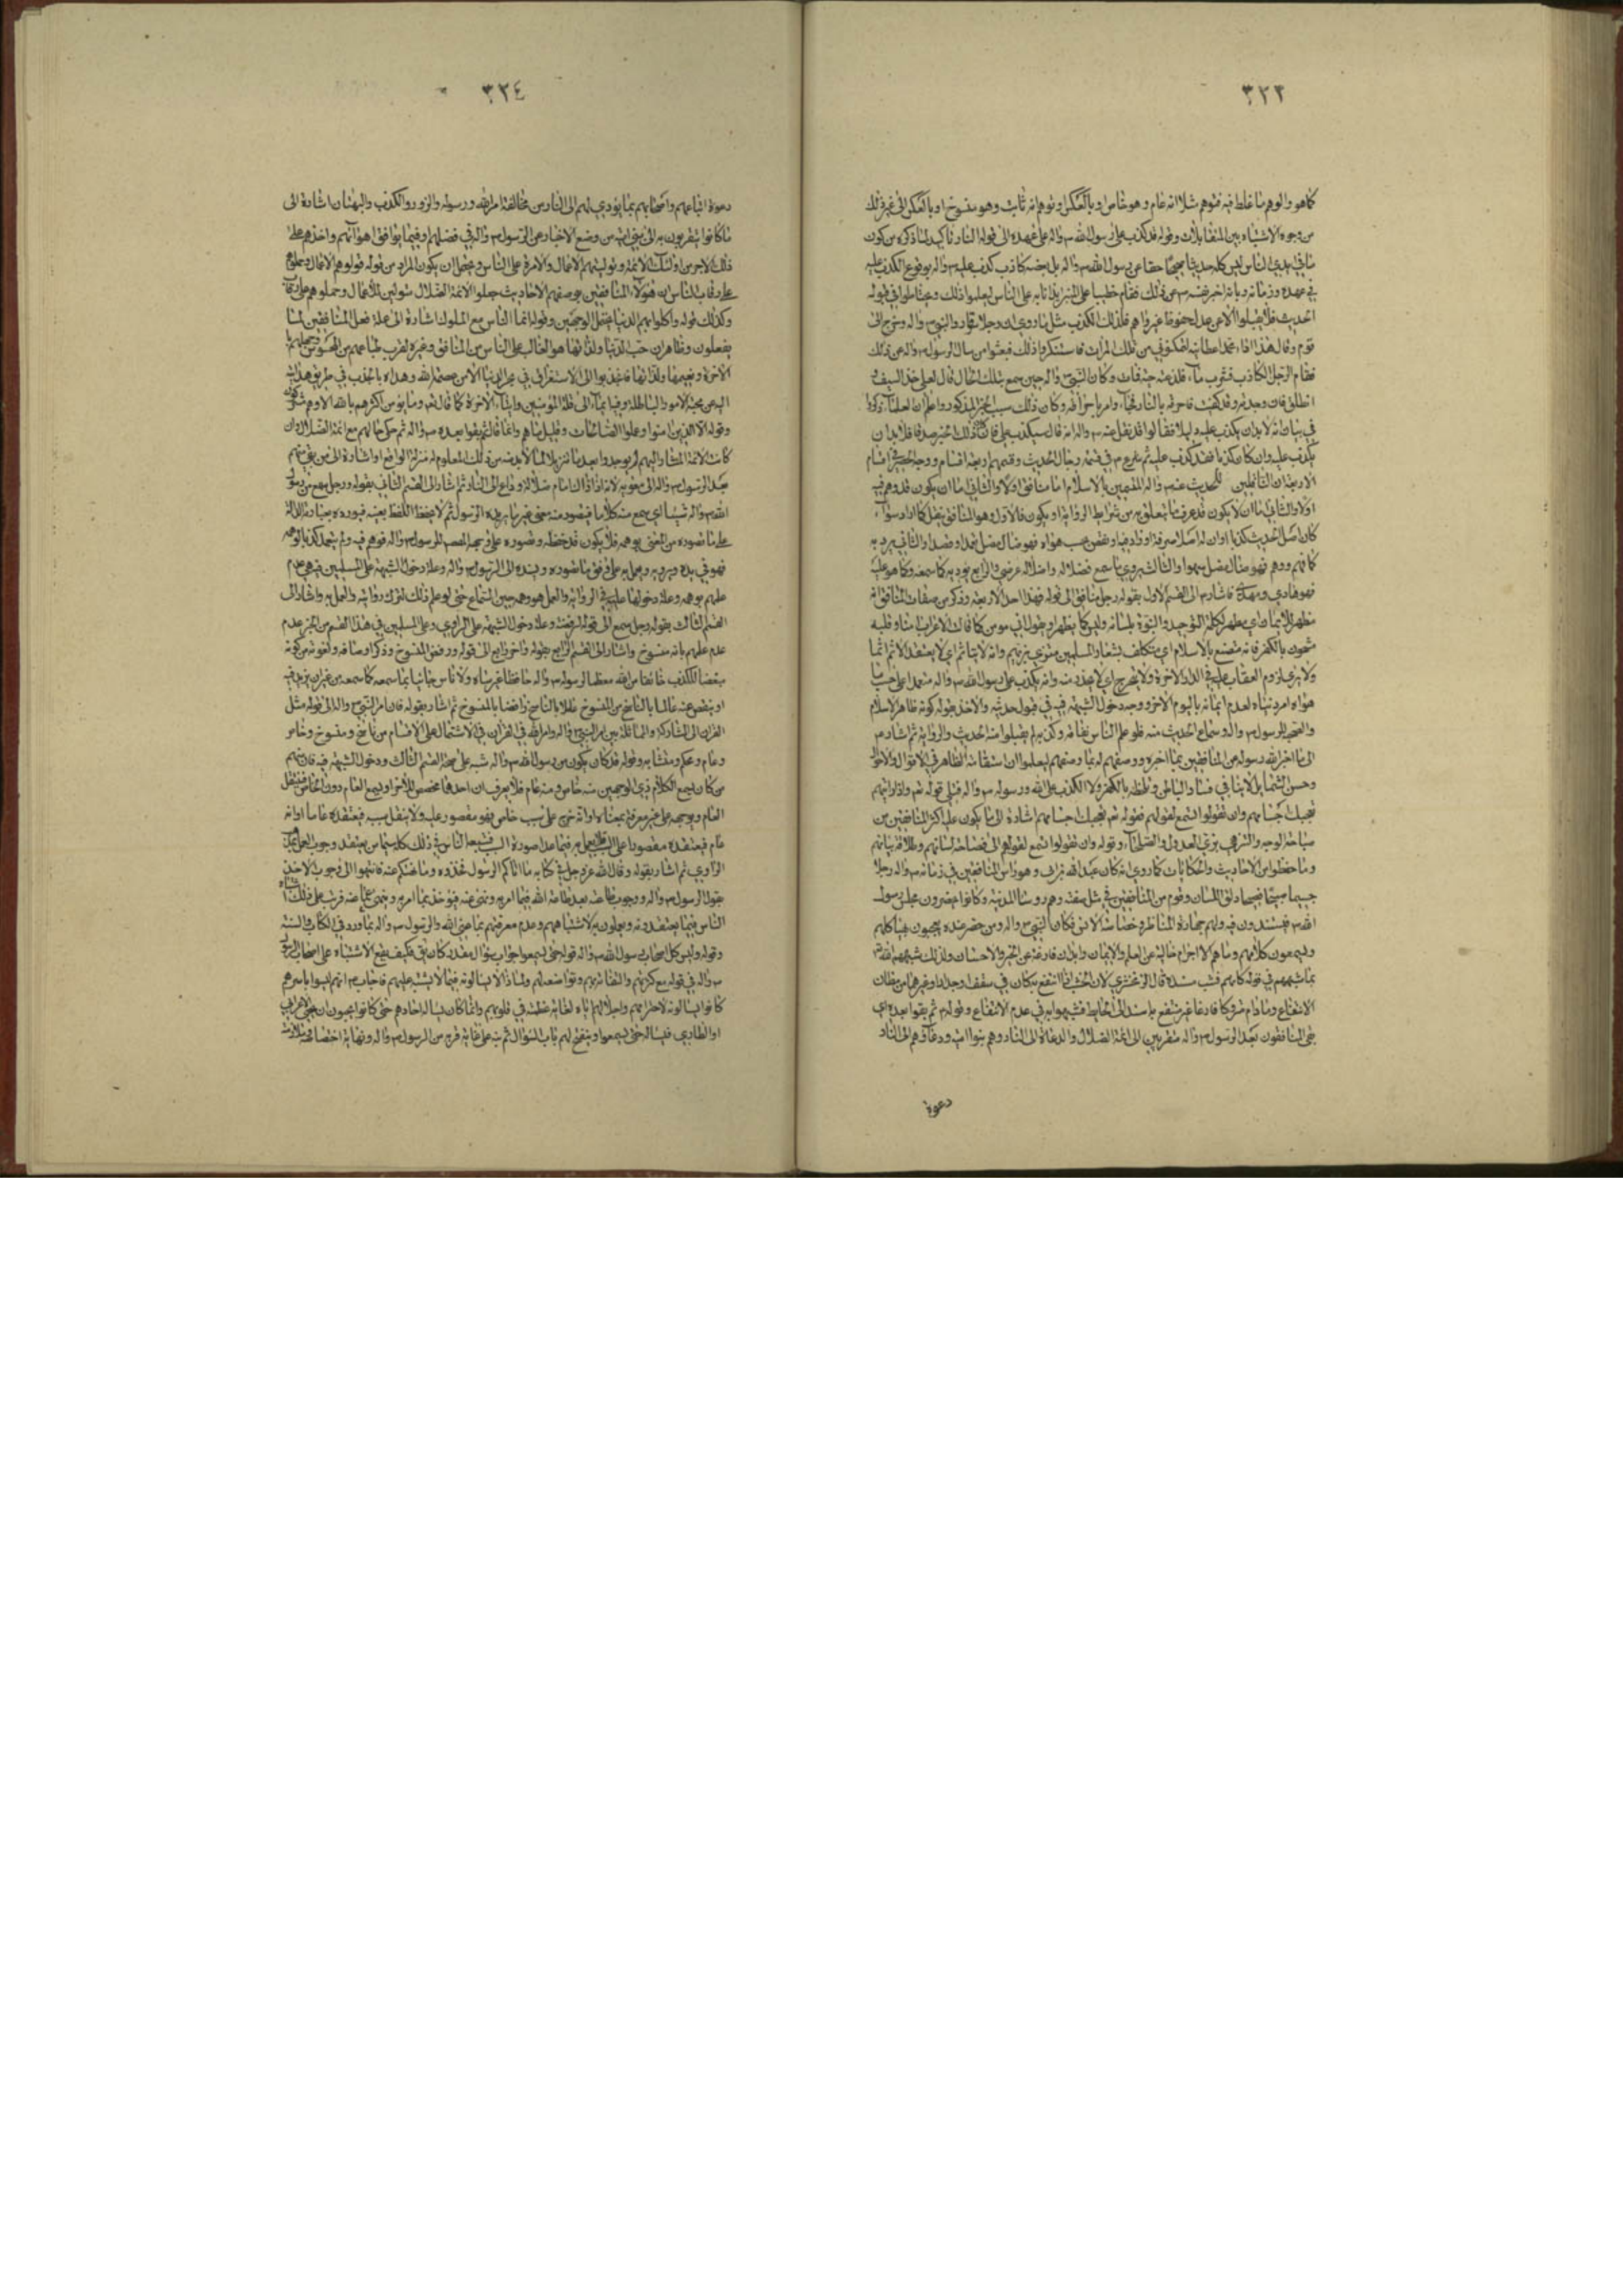 ٣٢٣
كما هو والوهم ما غلط فيه فتوهم مثلا انه عام وهو خاص او بالعكس او توهم انه ثابت وهو منسوخ او بالعكس الى غير ذلك
من وجوه الاشتباه بين المتقابلات وقوله قد كذب على رسول الله ص واله على عهده الى قوله النار تاكيد لما ذكره من كون
ما في ايدي الناس ليس كله حديثا صحيحا حقا عن رسول الله ص واله بل بعضه كاذب كذب عليه ص واله بوقوع الكذب عليه
في عهده وزمانه وبانه اخبر نفسه ص عن ذلك فقام خطيبا على المنبر ايذانا به على الناس ليعلموا ذلك ويحتاطوا في قبوله
الحديث فلا يقبلوا الا عن عدل محفوظا عبر واهم فلذلك الكذب مثل ما روي ان رجلا رداء النبي ص واله وخرج الى
قوم وقال هذا رداء محمد اعطانيه لتمكنوني من تلك المراة فاستنكروا ذلك فبعثوا من سال الرسول ص واله عن ذلك
فقام الرجل الكاذب فشرب ماء فلدغته حية فمات وكان النبي ص واله حين سمع بتلك الحال قال لعلي خذ السيف و
انطلق فان وجدته وقد كفيت فاحرقه بالنار فجاء وامر باحراقه وكان ذلك سبب الخبر المذكور واعلم ان العلماء ذكروا
في بيان انه لا بد ان يكذب عليه دليلا فقالوا قد نقل عنه ص واله انه قال سيكذب علي فان كان ذلك الخبر صدقا فلا بد ان
يكذب عليه وان كان كذبا فقد كذب عليه ثم شرع ص في قسمة رجال الحديث وقسمهم اربعة اقسام ووجه الحصر في اقسام
الاربعة ان الناقلين للحديث عنه ص واله المتسمين بالاسلام اما منافق اولا والثاني اما ان يكون قد وهم فيه
اولا والثاني اما ان لا يكون قد عرف ما يتعلق به من شرايط الرواية او يكون فالاول وهو المنافق ينقل كما اراد سواء
كان اصل الحديث كذبا او ان له اصلا حرفه وزاد فيه ونقص بحسب هواه فهو ضال مضل عمدا وقصدا والثاني يرويه
كما فهم ووهم فهو ضال مضل سهوا والثالث يروي ما سمع فضلاله واضلاله عرضي والرابع يؤديه كما سمعه وكما هو عليه
فهو هادي ومهدي فاشار ص الى القسم الاول بقوله رجل منافق الى قوله فهذا احد الاربعة وذكر من صفات المنافق انه
مظهر للايمان اي يظهر لكلمة التوحيد والنبوة بلسانه وليس كما يظهر ويقول اني مومن كما قالت الاعراب امنا وقلبه
مشحون بالكفر فانه متصنع بالاسلام اي متكلف بشعار المسلمين متزي بزيهم وانه لا يتاثم اي لا يعتقد الاثم اثما
ولا يرى لزوم العقاب عليه في الدار الاخرة ولا يتحرج اي لا يجد منه وانه يكذب على رسول الله ص واله متعمدا على حسب ما
هواه امر دنياه لعدم ايمانه باليوم الاخر ووجه دخول الشبهة فيه في قبول حديثه والاخذ بقوله كونه ظاهر الاسلام
والصحبة للرسول ص واله وسماع الحديث منه فلو علم الناس نفاقه وكذبه لم يقبلوا منه الحديث والرواية ثم اشار ص
الى ما اخبر الله رسوله عن المنافقين بما اخبره ووصفهم له بما وصفهم ليعلموا ان استقامة الظاهر في الاقوال والاحوال
وحسن الشمايل لا ينافي فساد الباطن وتلطخه بالكفر والكذب على الله ورسوله ص واله فتلى قوله تعالى واذا رايتهم
تعجبك اجسامهم وان يقولوا تسمع لقولهم فقوله تعالى تعجبك اجسامهم اشارة الى ما يكون عليه اكثر المنافقين من
صباحة الوجه والتزهي بزي العدول والصلحاء وقوله وان يقولوا تسمع لقولهم الى فصاحة لسانهم وطلاقة بيانهم
وما حفظوا من الاحاديث والحكايات كما روي انه كان عبد الله بن ابي وهو راس المنافقين في زمانه ص واله رجلا
جسيما صبيحا فصيحا ذلق اللسان وقوم من المنافقين في مثل صفته وهم روساء المدينة وكانوا يحضرون مجلس رسول
الله ص فيستندون فيه ولهم جهارة المناظر وفصاحة الالسن فكان النبي ص واله ومن حضر عنده يعجبون بهياكلهم
ويسمعون كلامهم وما هم الا اجرام خالية عن العلم والايمان وابدان فارغة عن الخير والاحسان ولذلك شبههم الله
بما شبههم في قوله كانهم خشب مسندة قال الزمخشري لان الخشب اذا انتفع به كان في سقف وجدار وغيرهما من مظان
الانتفاع وما دام متروكا فارغا غير منتفع به اسند الى الحايط فشبهوا به في عدم الانتفاع وقوله ثم بقوا بعده اي
بقي المنافقون بعد الرسول ص واله متقربين الى ائمة الضلال والدعاة الى النار وهم بنو امية ودعاؤهم الى النار
دعوة
٣٢٤
دعوة اتباعهم واصحابهم بما يؤدي لهم الى النار من مخالفة امر الله ورسوله والزور والكذب والبهتان اشارة الى
ما كانوا يتقربون به الى بني امية من وضع الاخبار عن الرسول ص واله في فضلهم وفيما يوافق اهوآئهم واخذهم على
ذلك الاجر من اولئك الائمة وتوليتهم الاعمال والامرة على الناس ويحتمل ان يكون المراد من قوله فولوهم الاعمال وحملوهم
على رقاب الناس ان هؤلاء المنافقين بوضعهم الاحاديث جعلوا الائمة الضلال متولين للاعمال وحملوهم على رقاب
وكذلك قوله واكلوا بهم الدنيا يحتمل الوجهين وقوله انما الناس مع الملوك اشارة الى علة فعل المنافقين لما
يفعلون وظاهر ان حب الدنيا ولذاتها هو الغالب على الناس من المنافق وغيره لقرب طباعهم من المحسوس وجهلهم با
الاخرة ونعيمها ولذاتها فانجذبوا الى الاستغراق في بحر الدنيا الا من عصمه الله وهداه بالجذب في طريق هدايته
اليه عن محبة الامور الباطلة وفيه ايماء الى قلة المؤمنين وابناء الاخرة كما قال تعالى وما يؤمن اكثرهم بالله الا وهم مشركون
وقوله الا الذين امنوا وعملوا الصالحات وقليل ما هم وانما قال ثم بقوا بعده ص واله ثم حكى حالهم مع ائمة الضلال وان
كانت الائمة المشار اليهم لم يوجدوا بعد تنزيلا لما لا بد منه من ذلك المعلوم له منزلة الواقع او اشارة الى من بقي منهم
بعد الرسول ص واله الى معوية لانه اذ ذاك امام ضلالة وداع الى النار ثم اشار الى القسم الثاني بقوله ورجل سمع من رسول
الله ص واله شيئا اي سمع منه كلاما فتصور منه معنى غير ما يريده الرسول ثم لا يحفظ اللفظ بعينه فيورده بعبارة دالة
على ما تصوره من المعنى بوهمه فلا يكون قد حفظه وتصوره على وجهه المقصود للرسول ص واله فوهم فيه ولم يتعمد كذبا لوهمه
فهو في يده ويرويه ويعمل به على وفق ما تصوره ويسنده الى الرسول ص واله وعلة دخول الشبهة على المسلمين فيه هي عدم
علمهم بوهمه وعلة دخولها عليه في الرواية والعمل هو وهمه حين السماع حتى لو علم ذلك لترك روايته والعمل به واشار الى
القسم الثالث بقوله ورجل سمع الى قوله لرفضه وعلة دخول الشبهة على الراوي وعلى المسلمين في هذا القسم من الخبر عدم
عدم علمهم بانه منسوخ واشار الى القسم الرابع بقوله واخر رابع الى قوله ورفض المنسوخ وذكر اوصافه ونعوته من كونه
مبغضا للكذب خائفا من الله معظما لرسوله ص واله حافظا غير ساه ولا ناس جائيا بما سمعه كما سمعه من غير ان يزيد فيه
او ينقص عنه عالما بالناسخ من المنسوخ عاملا بالناسخ رافضا بالمنسوخ ثم اشار بقوله فان امر النبي ص واله الى قوله مثل
القران الى المشاركة والمماثلة بين امر النبي ص واله وامر الله في القران في الاشتمال على الاقسام من ناسخ ومنسوخ وخاص
وعام ومحكم ومتشابه وقوله قد كان يكون من رسول الله ص واله تنبيه على صحة القسم الثالث ودخول الشبهة فيه فان منهم
من كان يسمع الكلام ذي الوجهين منه خاص ومنه عام فلا يعرف ان احدهما مخصص للاخر او يسمع العام دون الخاص فينقل
العام ويوجهه على غير معرفة بمعناه او انه خرج على سبب خاص فهو مقصور عليه ولا ينقل سببه فيعتقده عاما او انه
عام فيعتقده مقصورا على السبب ولا يعمل به فيما عدا صورة السبب فيتبعه الناس في ذلك كله سيما من يعتقد وجوب العمل بما
الراوي ثم اشار بقوله وقال الله عز وجل في كتابه ما اتاكم الرسول فخذوه وما نهاكم عنه فانتهوا الى وجوب الاخذ
بقول الرسول ص واله ووجوب طاعته بعد طاعة الله فيما امر به ونهى عنه فيؤخذ بما امر به وينتهى عما نهى عنه فرتب على ذلك اشتباه
الناس فيما يعتقدونه ويعملون به لاشتباههم وعدم معرفتهم بما عنى الله والرسول ص واله بما ورد في الكتاب والسنة
وقوله وليس كل اصحاب رسول الله ص واله قوله حتى يسمعوا جواب سؤال مقدر كان يق فكيف يقع الاشتباه على اصحاب الرسول
ص واله في قوله مع كثرتهم وتواضعه لهم ولماذا لا يسالونه فيما لا يشتبه عليهم فاجاب ص انهم ليسوا باسرهم
كانوا يسالونه لاحترامهم واجلالهم اياه لغاية عظمته في قلوبهم وانما كان يساله احادهم حتى كانوا يحبون ان يجئ الاعرابي
او الطاري فيساله حتى يسمعوا وينفتح لهم باب السؤال ثم نبه على غاية قربه من الرسول ص واله ونهاية اختصاصه